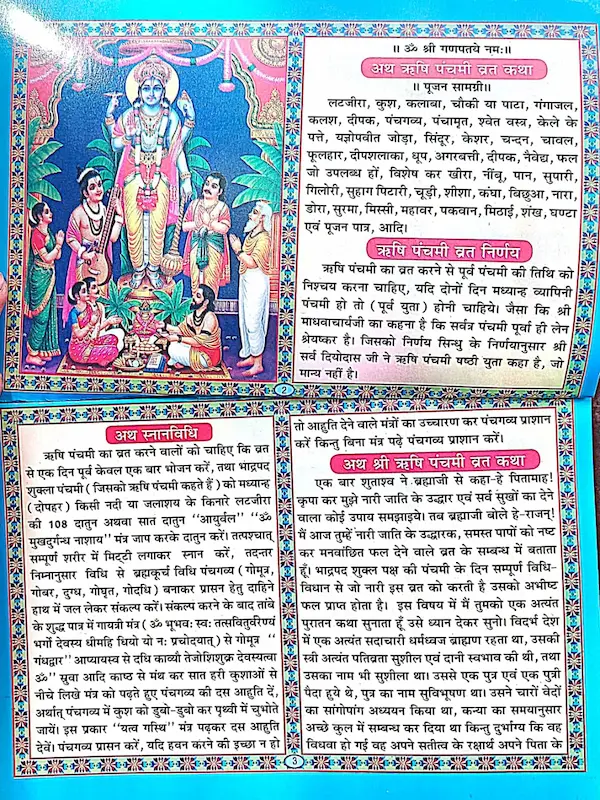 ॥ ॐ श्री गणपतये नमः॥
अथ ऋषि पंचमी व्रत कथा
॥ पूजन सामग्री॥
लटजीरा, कुश, कलावा, चौकी या पाटा, गंगाजल,
कलश, दीपक, पंचगव्य, पंचामृत, श्वेत वस्त्र, केले के
पत्ते, यज्ञोपवीत जोड़ा, सिंदूर, केशर, चन्दन, चावल,
फूलहार, दीपशलाका, धूप, अगरबत्ती, दीपक, नैवेद्य, फल
जो उपलब्ध हों, विशेष कर खीरा, नींबू, पान, सुपारी,
गिलोरी, सुहाग पिटारी, चूड़ी, शीशा, कंघा, बिछुआ, नारा,
डोरा, सुरमा, मिस्सी, महावर, पकवान, मिठाई, शंख, घण्टा
एवं पूजन पात्र, आदि।
ऋषि पंचमी व्रत निर्णय
ऋषि पंचमी का व्रत करने से पूर्व पंचमी की तिथि को
निश्चय करना चाहिए, यदि दोनों दिन मध्यान्ह व्यापिनी
पंचमी हो तो (पूर्व युता) होनी चाहिये। जैसा कि श्री
माधवाचार्यजी का कहना है कि सर्वत्र पंचमी पूर्वा ही लेन
श्रेयष्कर है। जिसको निर्णय सिन्धु के निर्णयानुसार श्री
सर्व दियोदास जी ने ऋषि पंचमी षष्ठी युता कहा है, जो
मान्य नहीं है।
2
अथ स्नानविधि
ऋषि पंचमी का व्रत करने वालों को चाहिए कि व्रत
से एक दिन पूर्व केवल एक बार भोजन करें, तथा भाद्रपद
शुक्ला पंचमी (जिसको ऋषि पंचमी कहते हैं) को मध्यान्ह
(दोपहर) किसी नदी या जलाशय के किनारे लटजीरा
की 108 दातुन अथवा सात दातुन ''आयुर्वल'' ''ॐ
मुखदुर्गन्ध नाशाय'' मंत्र जाप करके दातुन करें। तत्पश्चात्
सम्पूर्ण शरीर में मिट्टी लगाकर स्नान करें, तदनार
निम्नानुसार विधि से ब्रह्मकूर्च विधि पंचगव्य (गोमूत्र,
गोबर, दुग्ध, गोघृत, गोदधि) बनाकर प्रासन हेतु दाहिने
हाथ में जल लेकर संकल्प करें। संकल्प करने के बाद तांबे
के शुद्ध पात्र में गायत्री मंत्र (ॐ भूभवः स्वः तत्सवितुर्वरेण्यं
भर्गो देवस्य धीमहि धियो यो नः प्रचोदयात्) से गोमूत्र ''
गंधद्वार'' आप्यायस्व से दधि काव्यौ तेजोशिशुक्र देवस्यत्वा
ॐ'' स्रुवा आदि काष्ठ से मंथ कर सात हरी कुशाओं से
नीचे लिखे मंत्र को पढ़ते हुए पंचगव्य की दस आहुति दें,
अर्थात् पंचगव्य में कुश को डुबो-डुबो कर पृथ्वी में चुभोते
जायें। इस प्रकार ''यत्व गस्थि'' मंत्र पढ़कर दस आहुति
देवें। पंचगव्य प्रासन करें, यदि हवन करने की इच्छा न हो
तो आहुति देने वाले मंत्रों का उच्चारण कर पंचगव्य प्राशान
करें किन्तु बिना मंत्र पढ़े पंचगव्य प्राशान करें।
अथ श्री ऋषि पंचमी व्रत कथा
एक बार शुताश्व ने ब्रह्माजी से कहा-हे पितामाह!
कृपा कर मुझे नारी जाति के उद्धार एवं सर्व सुखों का देने
वाला कोई उपाय समझाइये। तब ब्रह्माजी बोले हे-राजन्!
मैं आज तुम्हें नारी जाति के उद्धारक, समस्त पापों को नष्ट
कर मनवांछित फल देने वाले व्रत के सम्बन्ध में बताता
हूँ। भाद्रपद शुक्ल पक्ष की पंचमी के दिन सम्पूर्ण विधि-
विधान से जो नारी इस व्रत को करती है उसको अभीष्ट
फल प्राप्त होता है। इस विषय में मैं तुमको एक अत्यंत
पुरातन कथा सुनाता हूँ उसे ध्यान देकर सुनो। विदर्भ देश
में एक अत्यंत सदाचारी धर्मध्वज ब्राह्मण रहता था, उसकी
स्त्री अत्यंत पतिव्रता सुशील एवं दानी स्वभाव की थी, तथा
उसका नाम भी सुशीला था। उससे एक पुत्र एवं एक पुत्री
पैदा हुये थे, पुत्र का नाम सुविभूषणा था। उसने चारों वेदों
का सांगोपांग अध्ययन किया था, कन्या का समयानुसार
अच्छे कुल में सम्बन्ध कर दिया था किन्तु दुर्भाग्य कि वह
विधवा हो गई वह अपने सतीत्व के रक्षार्थ अपने पिता के
3